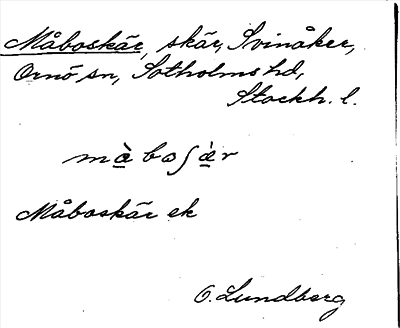 Måboskär, skär, Svinåker,
Ornö sn, Sotholms hd,
Stockh. l.
mà̱boʃæ̱̀r
Måboskär ek
O. Lundberg